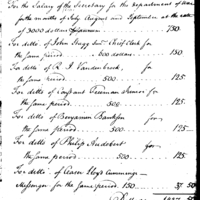 For the Salary of the Secretary for the department of War
for the months of July August and September at the rate
of 3000 dollars p annum 750
For ditto of John Stagg Junr Chief Clerk for
the same period dollars 150
For ditto of R. J. Vandenbroek, for
the same period 500 125
For ditto of Constant Freeman Junior for
the same period 500 125
For ditto of Benjamin Bankson for
the same period 500 125
For ditto of Philip Audebert for
the same period 500 125
For ditto of Cesar Lloyd Cummings
Messenger for the same period 150 37 50